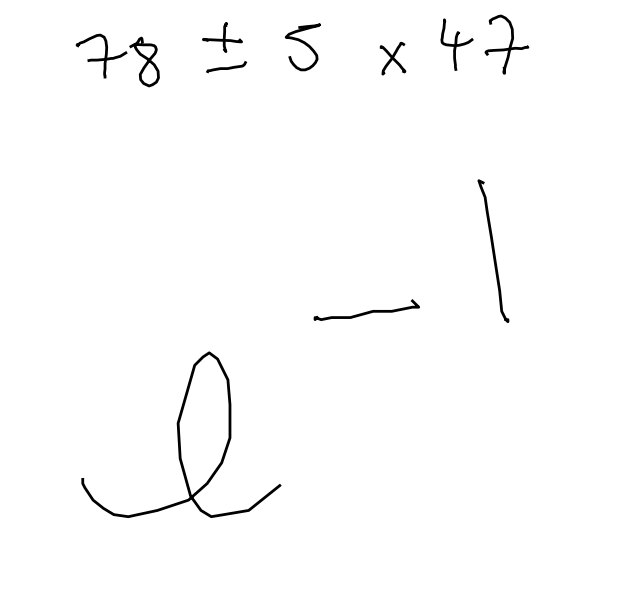 78 ± 5 x 47
l^{-1}